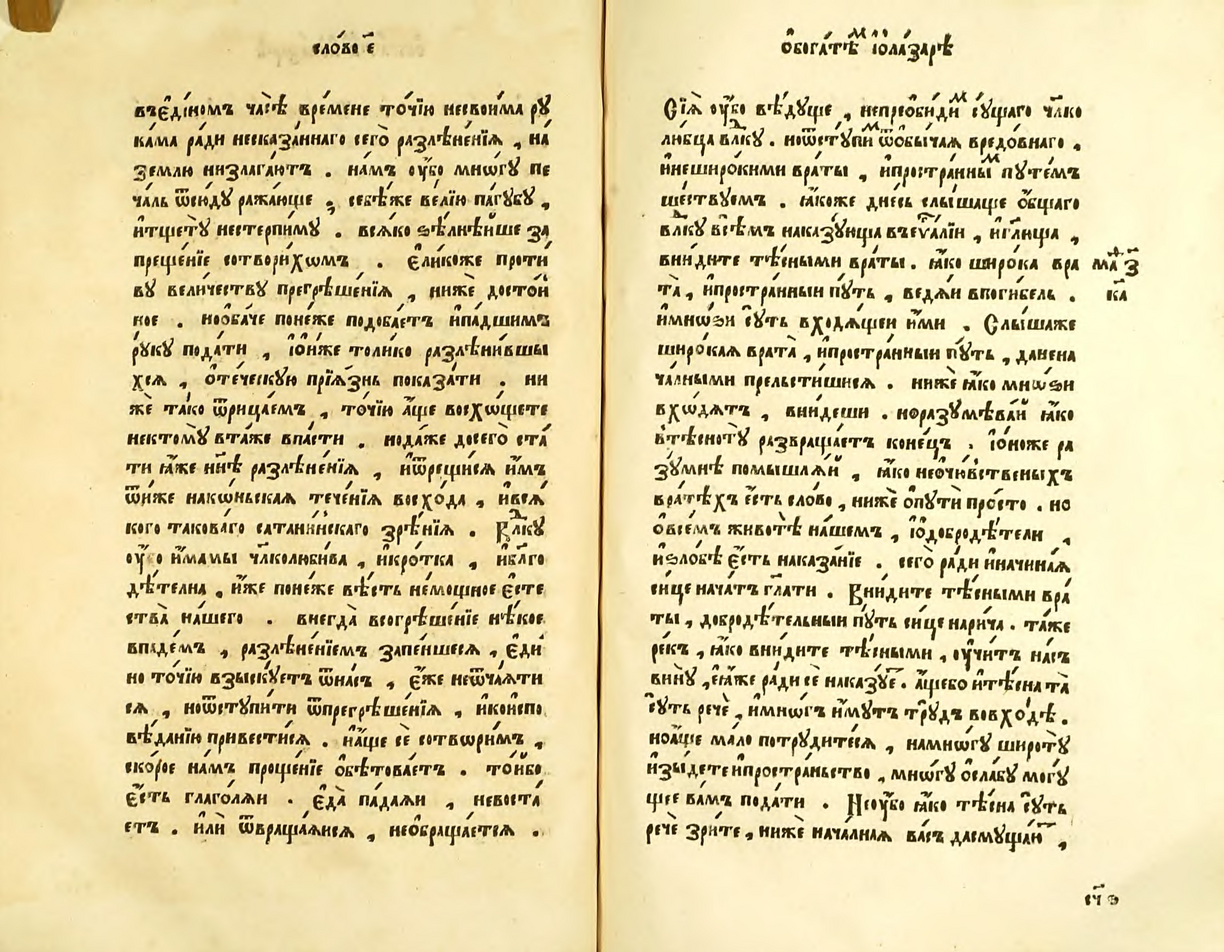 сло́во є҃
въє҆ди́номъ ча́сѣ вре́мене то́чїю несвои́ма рꙋ
ка́ма ра́ди несказа́ннаго сего̀ разлѣне́нїѧ , на́
зе́млю низлага́ютъ . на́мъ ᲂу҆́бо мно́гꙋ пе
ча́ль ѿвсю́дꙋ ража́юще , себѣ́же ве́лїю па́гꙋбꙋ ,
и҆тщетꙋ̀ нестерпи́мꙋ . всѧ́ко ѕѣлнѣ́йше за
преще́нїе сотвори́хомъ . є҆ли́коже проти
вꙋ̀ вели́чествꙋ прегрѣше́нїѧ , ни́же досто́й
ное . но̑ба́че поне́же подоба́етъ и҆па́дшимъ
рꙋ́кꙋ пода́ти , і҆ѡ҆ни́же толи́ко разлѣни́вшы
хсѧ , ѻ҆те́ческꙋю прїѧ́знь показа́ти . ни
же та́ко ѿрица́емъ , то́чїю а҆́ще восхо́щете
нектомꙋ̀ вта́же впа́сти . нода́же досего̀ ста́
ти ꙗ҆́же нн҃ѣ разлѣне́нїѧ , и҆ѿрещи́сѧ и҆́мъ
ѿни́же нако́ньскаѧ тече́нїѧ восхо́да , и҆всѧ́
кого таково́го сатани́нскаго зрѣ́нїѧ . Влⷣкꙋ
ᲂу҆́бо и҆́мамы чл҃колюби́ва , и҆кро́тка , и҆бл҃го
дѣ́телна , и҆́же поне́же вѣ́сть не́мощное є҆сте
ства̀ на́шего . внегда̀ всогрѣше́нїе нѣ́кое
впаде́мъ , разлѣне́нїемъ запе́ншесѧ , є҆ди́
но то́чїю взы́скꙋетъ ѿна́съ , є҆́же неѿча́ѧти
сѧ , ноѿстꙋпи́ти ѿпрегрѣше́нїѧ , и҆коиспо
вѣ́данїю привести́сѧ . и҆а҆́ще сѐ сотвори́мъ ,
ско́рое на́мъ проще́нїе ѡ҆бѣтова́етъ . то́йбо
є҆́сть глаго́лѧи . є҆да̀ па́даѧи , невоста
етъ . и҆лѝ ѿвраща́ѧисѧ , неѡ҆браща́етсѧ .
ѻ҆бога́тѣмъ і҆ѡ҆ла́зарѣ
Сїѧ̀ ᲂу҆́бо вѣ́дꙋще , непреѻ҆би́димъ сꙋ́щаго чл҃ко
лю́бца влⷣкꙋ . ноѿстꙋпи́мъ ѿѻ҆бы́чаѧ вредо́внаго ,
и҆неширо́кими враты̀ , и҆простра́ннымъ пꙋте́мъ
ше́ствꙋемъ . ꙗ҆́коже дне́сь слы́шаще ѻ҆́бщаго
влⷣкꙋ всѣ́мъ наказꙋ́юща въеѵⷢ҇алїи , и҆гл҃юща ,
вни́дите тѣ́сными враты̀ . ꙗ҆́ко широ́ка вра
та̀ , и҆простра́нныи пꙋ́ть , ведѧ́и впоги́бель .
и҆мно́ѕи сꙋ́ть входѧ́щеи и҆́ми . Слы́шаже
широ́каѧ врата̀ , и҆простра́нныи пꙋ́ть , данена
ча́лными прельсти́шисѧ . ни́же ꙗ҆́ко мно́ѕи
вхо́дѧтъ , вни́деши . норазꙋмѣва́й ꙗ҆́ко
втѣснотꙋ̀ развраща́етъ коне́цъ . і҆ѡ҆но́же ра
зꙋ́мнѣ помышлѧ́й , ꙗ҆́ко неѡ҆чю́вственыхъ
вратѣ́хъ є҆́сть сло́во , ни́же ѡ҆пꙋтѝ про́сто . но
ѡ҆все́мъ животѣ̀ на́шемъ , і҆ѡ҆добродѣ́тели ,
и҆ѕло́бѣ є҆́сть наказа́нїе . сего̀ ра́ди и҆начина́ѧ
си́це нача́тъ гл҃ати . Вни́дите тѣ́сными вра
ты̀ , добродѣ́телныи пꙋ́ть си́це нарица́ . та́же
ре́къ , ꙗ҆́ко вни́дите тѣ́сными , ᲂу҆чи́тъ на́съ
винꙋ̀ , є҆ѧ́же ра́ди сѐ наказꙋ́е . а҆́щебо и҆тѣ́сна та̀
сꙋ́ть речѐ , и҆мно́гъ и҆́мꙋтъ трꙋ́дъ вовхо́дѣ .
ноа҆́ще ма́ло потрꙋ́дитесѧ , намно́гꙋ широтꙋ̀
и҆зы́дете и҆простра́ньство , мно́гꙋ ѻ҆сла́бꙋ могꙋ́
щее ва́мъ пода́ти . Неᲂу҆́бо ꙗ҆́ко тѣ́сна сꙋ́ть
речѐ зри́те , ни́же нача́лнаѧ ва́съ дасмꙋща́ю ,
маѳ з҃
к҃а